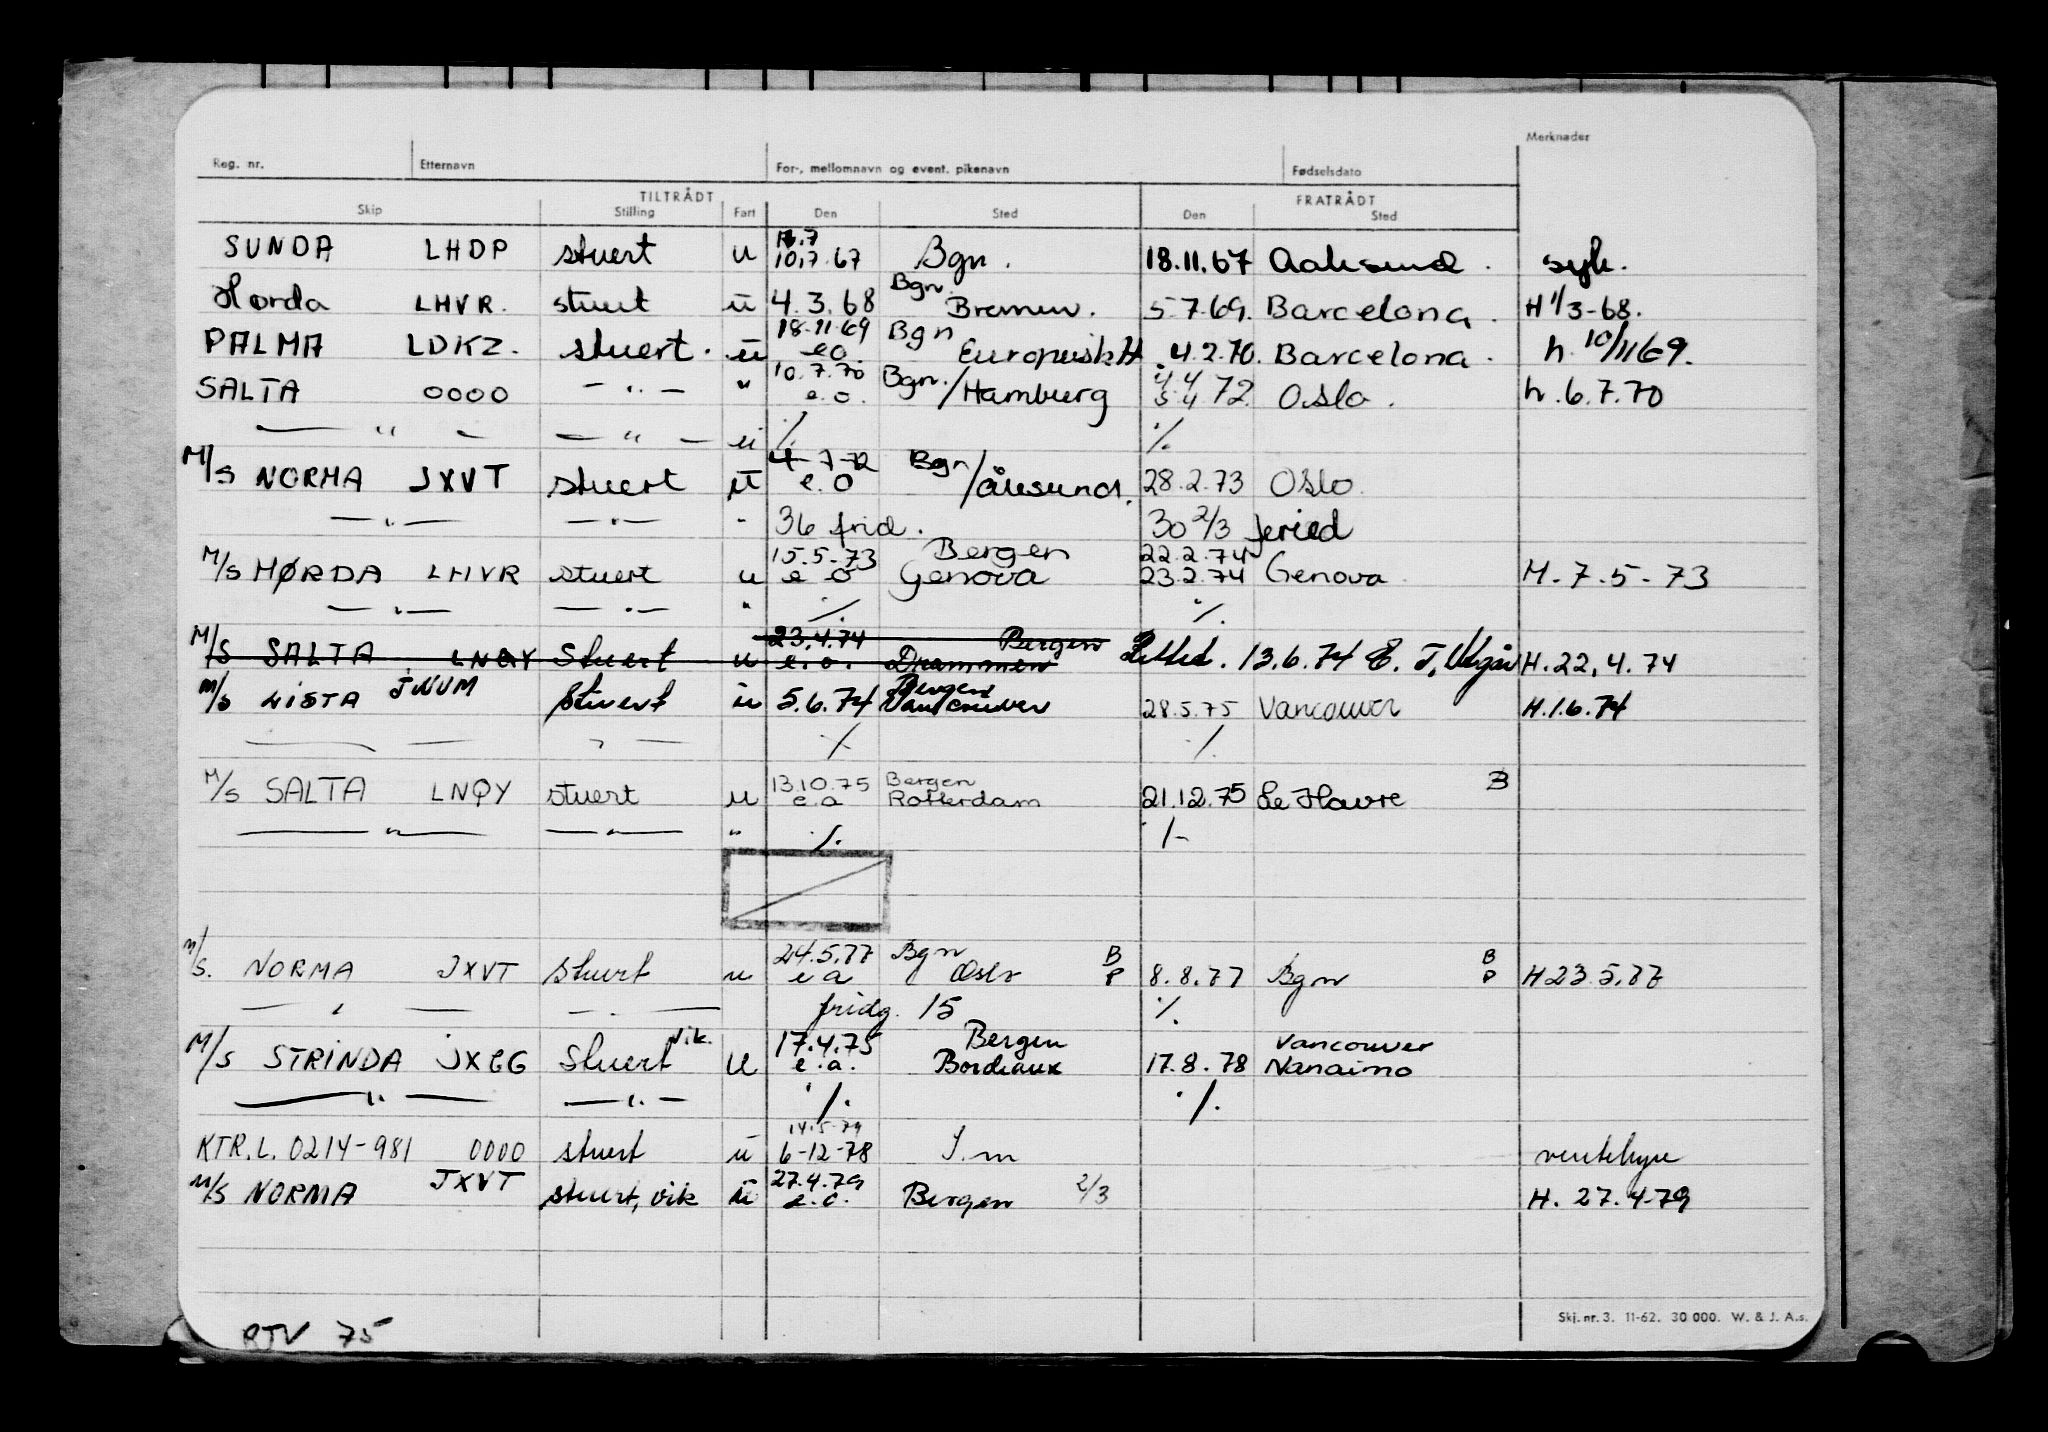 Merknader
Reg. nr. Etternavn For-, mellomnavn og event. pikenavn Fødselsdato
TILTRÅDT FRATRÅDT
Skip Stilling Fart Den Sted Den Sted
SUNDA LHDP stuert u 10.7.67 Bgn. 18.11.67 Aalesund. syk.
Bgn.
Hørda LHVR. stuert u 4.3.68 Bremen. 5.7.69. Barcelona. H 1/3-68.
18.11.69 Bgn
PALMA LDKZ. stuert. u e.o. Europoisk H 4.2.70. Barcelona. h. 10/11 69.
10.7.70 Bgn. 4.4
SALTA 0000 — " — " e.o. /Hamburg 5.4 72. Oslo. h. 6.7.70
— " — — " — u ./. ./.
4-7-72 Bgn
M/S NORMA JXVT stuert u e.o /ålesund. 28.2.73 Oslo.
— " — — " — " 36 frid. 30 2/3 feried
15.5.73 Bergen 22.2.74
M/S HØRDA LHVR stuert u e o Genova 23.2.74 Genova. H. 7.5-73
— " — — " — " ./. ./.
23.4.74 Bergen
M/S SALTA LNQY Stuert u e.o. Drammen Slettet. 13.6.74 E. T. Utgår H. 22.4.74
Bergen
M/S LISTA JNUM Stuert u 5.6.74 Vancouver 28.5.75 Vancouver H.1.6.74
— — — " — ./. ./.
13.10.75 Bergen B
M/S SALTA LNQY stuert u e.a Rotterdam 21.12.75 Le Havre
— " — — " — " ./. ./.
24.5.77 Bgn B B
M/S. NORMA JXVT Stuert u e a Oslo P 8.8.77 Bgn P H 23.5.77
— " — — " — fridg. 15 ./.
vik. 17.4.75 Bergen Vancouver
M/S STRINDA JXGG Stuert u e.a. Bordeaux 17.8.78 Nanaimo
— " — — " — ./. ./.
14.5.79
KTR.L. 0214-981 0000 stuert u 6-12-78 I.m ventehyre
27.4.79
M/S NORMA JXVT stuert, vik u e.o. Bergen 2/3 H. 27.4-79
Skj. nr. 3. 11-62. 30 000. W. & J. A.s.
RTV 75